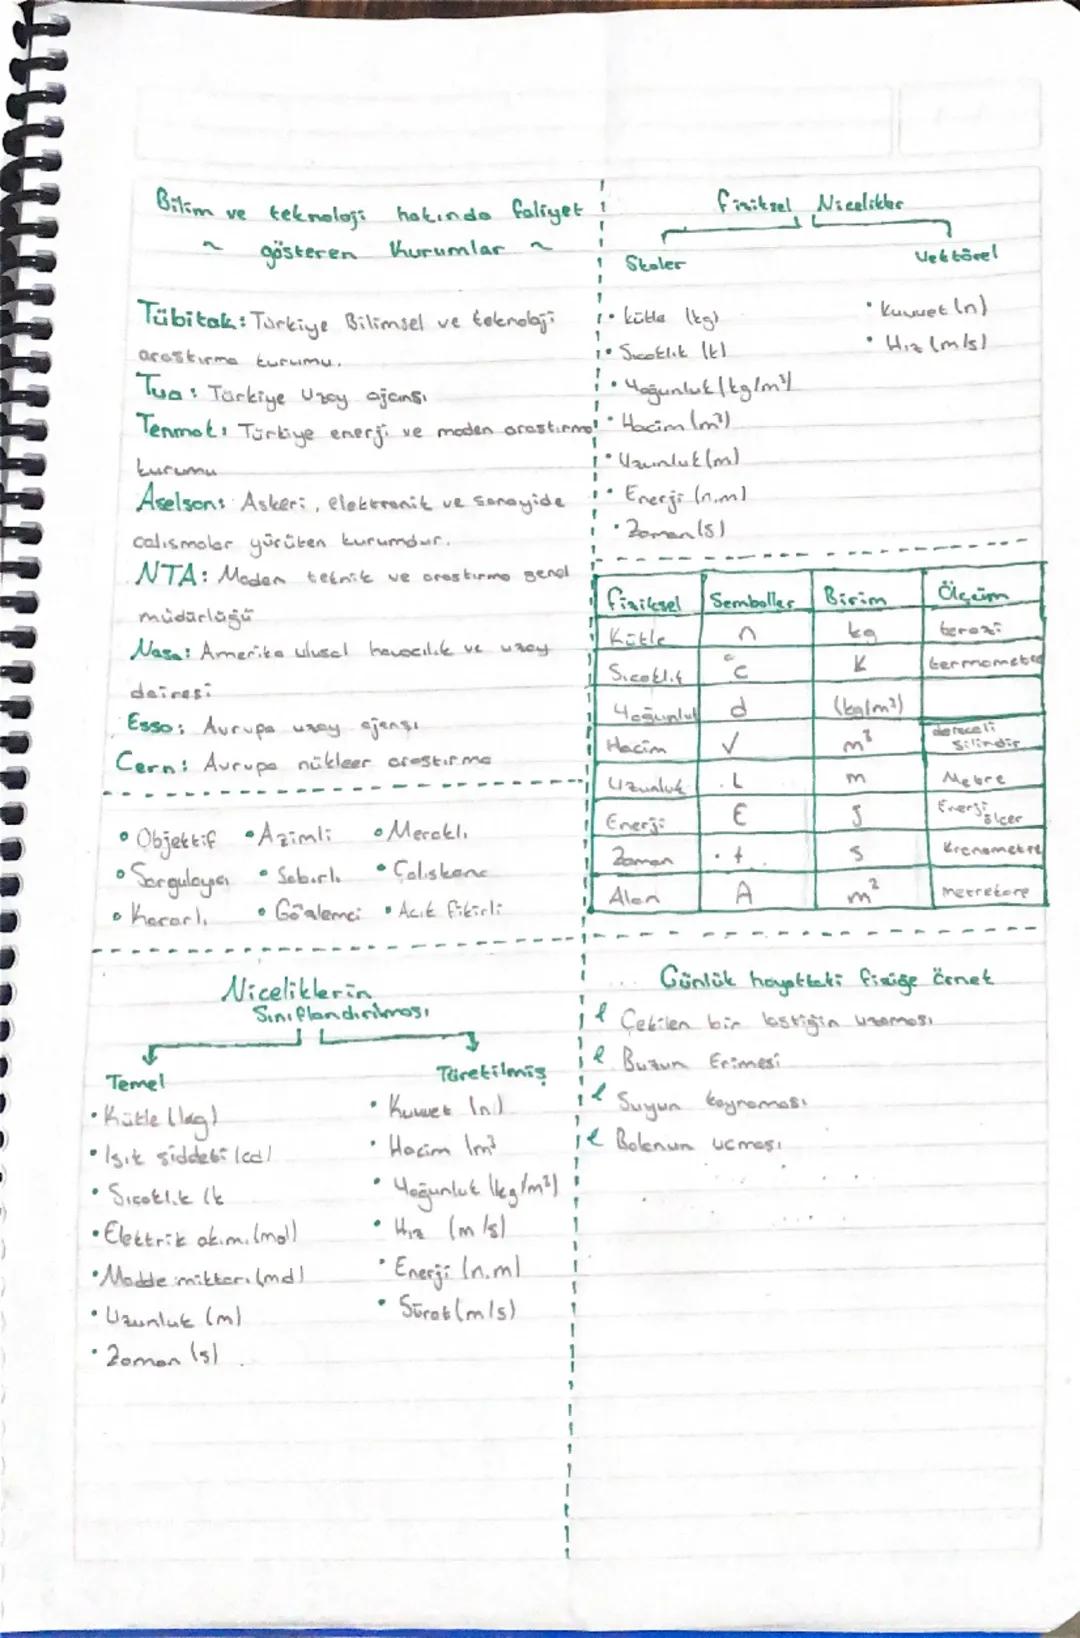 Bilim ve teknoloji hakında faliyet
~ gösteren Kurumlar ~
Tübitak: Türkiye Bilimsel ve teknoloji
arastırma kurumu.
Tua: Türkiye Uzay ajansı
Tenmak: Türkiye enerji ve maden arastırma
kurumu
Aselsan: Askeri, elektronik ve sanayide
calısmalar yürüten kurumdur.
NTA: Maden teknik ve arastırma genel
müdürlüğü
Nasa: Amerika ulusal havacılık ve uzay
dairesi
Esso: Avrupa uzay ajansı
Cern: Avrupa nükleer arastırma
• Objektif • Azimli • Meraklı
• Sorgulayıcı • Sabırlı • Calıskanc
• Kararlı • Gözlemci • Acık fikirli
Niceliklerin
Sınıflandırılması
Temel
• Kütle (kg)
• Işık şiddeti (cd)
• Sıcaklık (k
• Elektrik akımı (mol)
• Madde miktarı (md)
• Uzunluk (m)
• Zaman (s)
Türetilmiş
• Kuvvet (n)
• Hacim (m³
• Yoğunluk (kg/m³)
• Hız (m/s)
• Enerji (n.m)
• Sürat (m/s)
Fiziksel Nicelikler
Skaler
• kütle (kg)
• Sıcaklık (k)
• Yoğunluk (kg/m³)
• Hacim (m³)
• Uzunluk (m)
• Enerji (n.m)
• Zaman (s)
Vektörel
• Kuvvet (n)
• Hız (m/s)
Fiziksel Semboller Birim Ölçüm
Kütle n kg terazi
Sıcaklık °C K termometre
Yoğunluk d (kg/m³)
Hacim V m³ dereceli silindir
Uzunluk L m Metre
Enerji E J Enerji ölcer
Zaman t s Kronometre
Alan A m² metrekare
Günlük hayattaki fiziğe örnek
Çekilen bir lastiğin uzaması
Buzun Erimesi
Suyun kaynaması
Balonun ucması